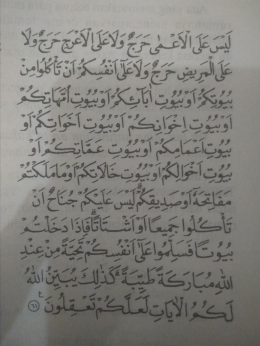 لَيْسَ عَلَى الْاَعْمٰى حَرَجٌ وَّلَا عَلَى الْاَعْرَجِ حَرَجٌ وَّلَا
عَلَى الْمَرِيْضِ حَرَجٌ وَّلَا عَلٰٓى اَنْفُسِكُمْ اَنْ تَأْكُلُوْا مِنْۢ
بُيُوْتِكُمْ اَوْ بُيُوْتِ اٰبَآئِكُمْ اَوْ بُيُوْتِ اُمَّهٰتِكُمْ
اَوْ بُيُوْتِ اِخْوَانِكُمْ اَوْ بُيُوْتِ اَخَوٰتِكُمْ اَوْ
بُيُوْتِ اَعْمَامِكُمْ اَوْ بُيُوْتِ عَمّٰتِكُمْ اَوْ
بُيُوْتِ اَخْوَالِكُمْ اَوْ بُيُوْتِ خٰلٰتِكُمْ اَوْ مَا مَلَكْتُمْ
مَّفَاتِحَهٗٓ اَوْ صَدِيْقِكُمْ لَيْسَ عَلَيْكُمْ جُنَاحٌ اَنْ
تَأْكُلُوْا جَمِيْعًا اَوْ اَشْتَاتًا فَاِذَا دَخَلْتُمْ
بُيُوْتًا فَسَلِّمُوْا عَلٰٓى اَنْفُسِكُمْ تَحِيَّةً مِّنْ عِنْدِ
اللّٰهِ مُبٰرَكَةً طَيِّبَةً كَذٰلِكَ يُبَيِّنُ اللّٰهُ
لَكُمُ الْاٰيٰتِ لَعَلَّكُمْ تَعْقِلُوْنَ ࣖ ٦١